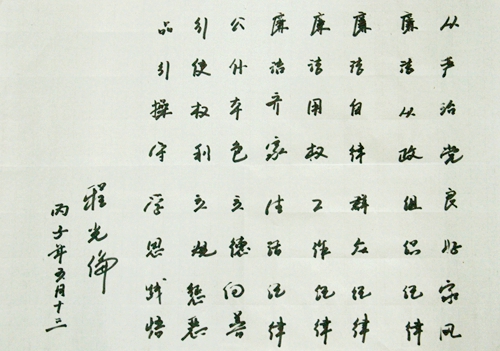 从严治党良好家风
廉洁从政组织纪律
廉洁自律群众纪律
廉洁用权工作纪律
廉洁齐家生活纪律
公仆本色立德向善
行使权利立规惩恶
品行操守学思践悟
程光伦
丙子年五月十二